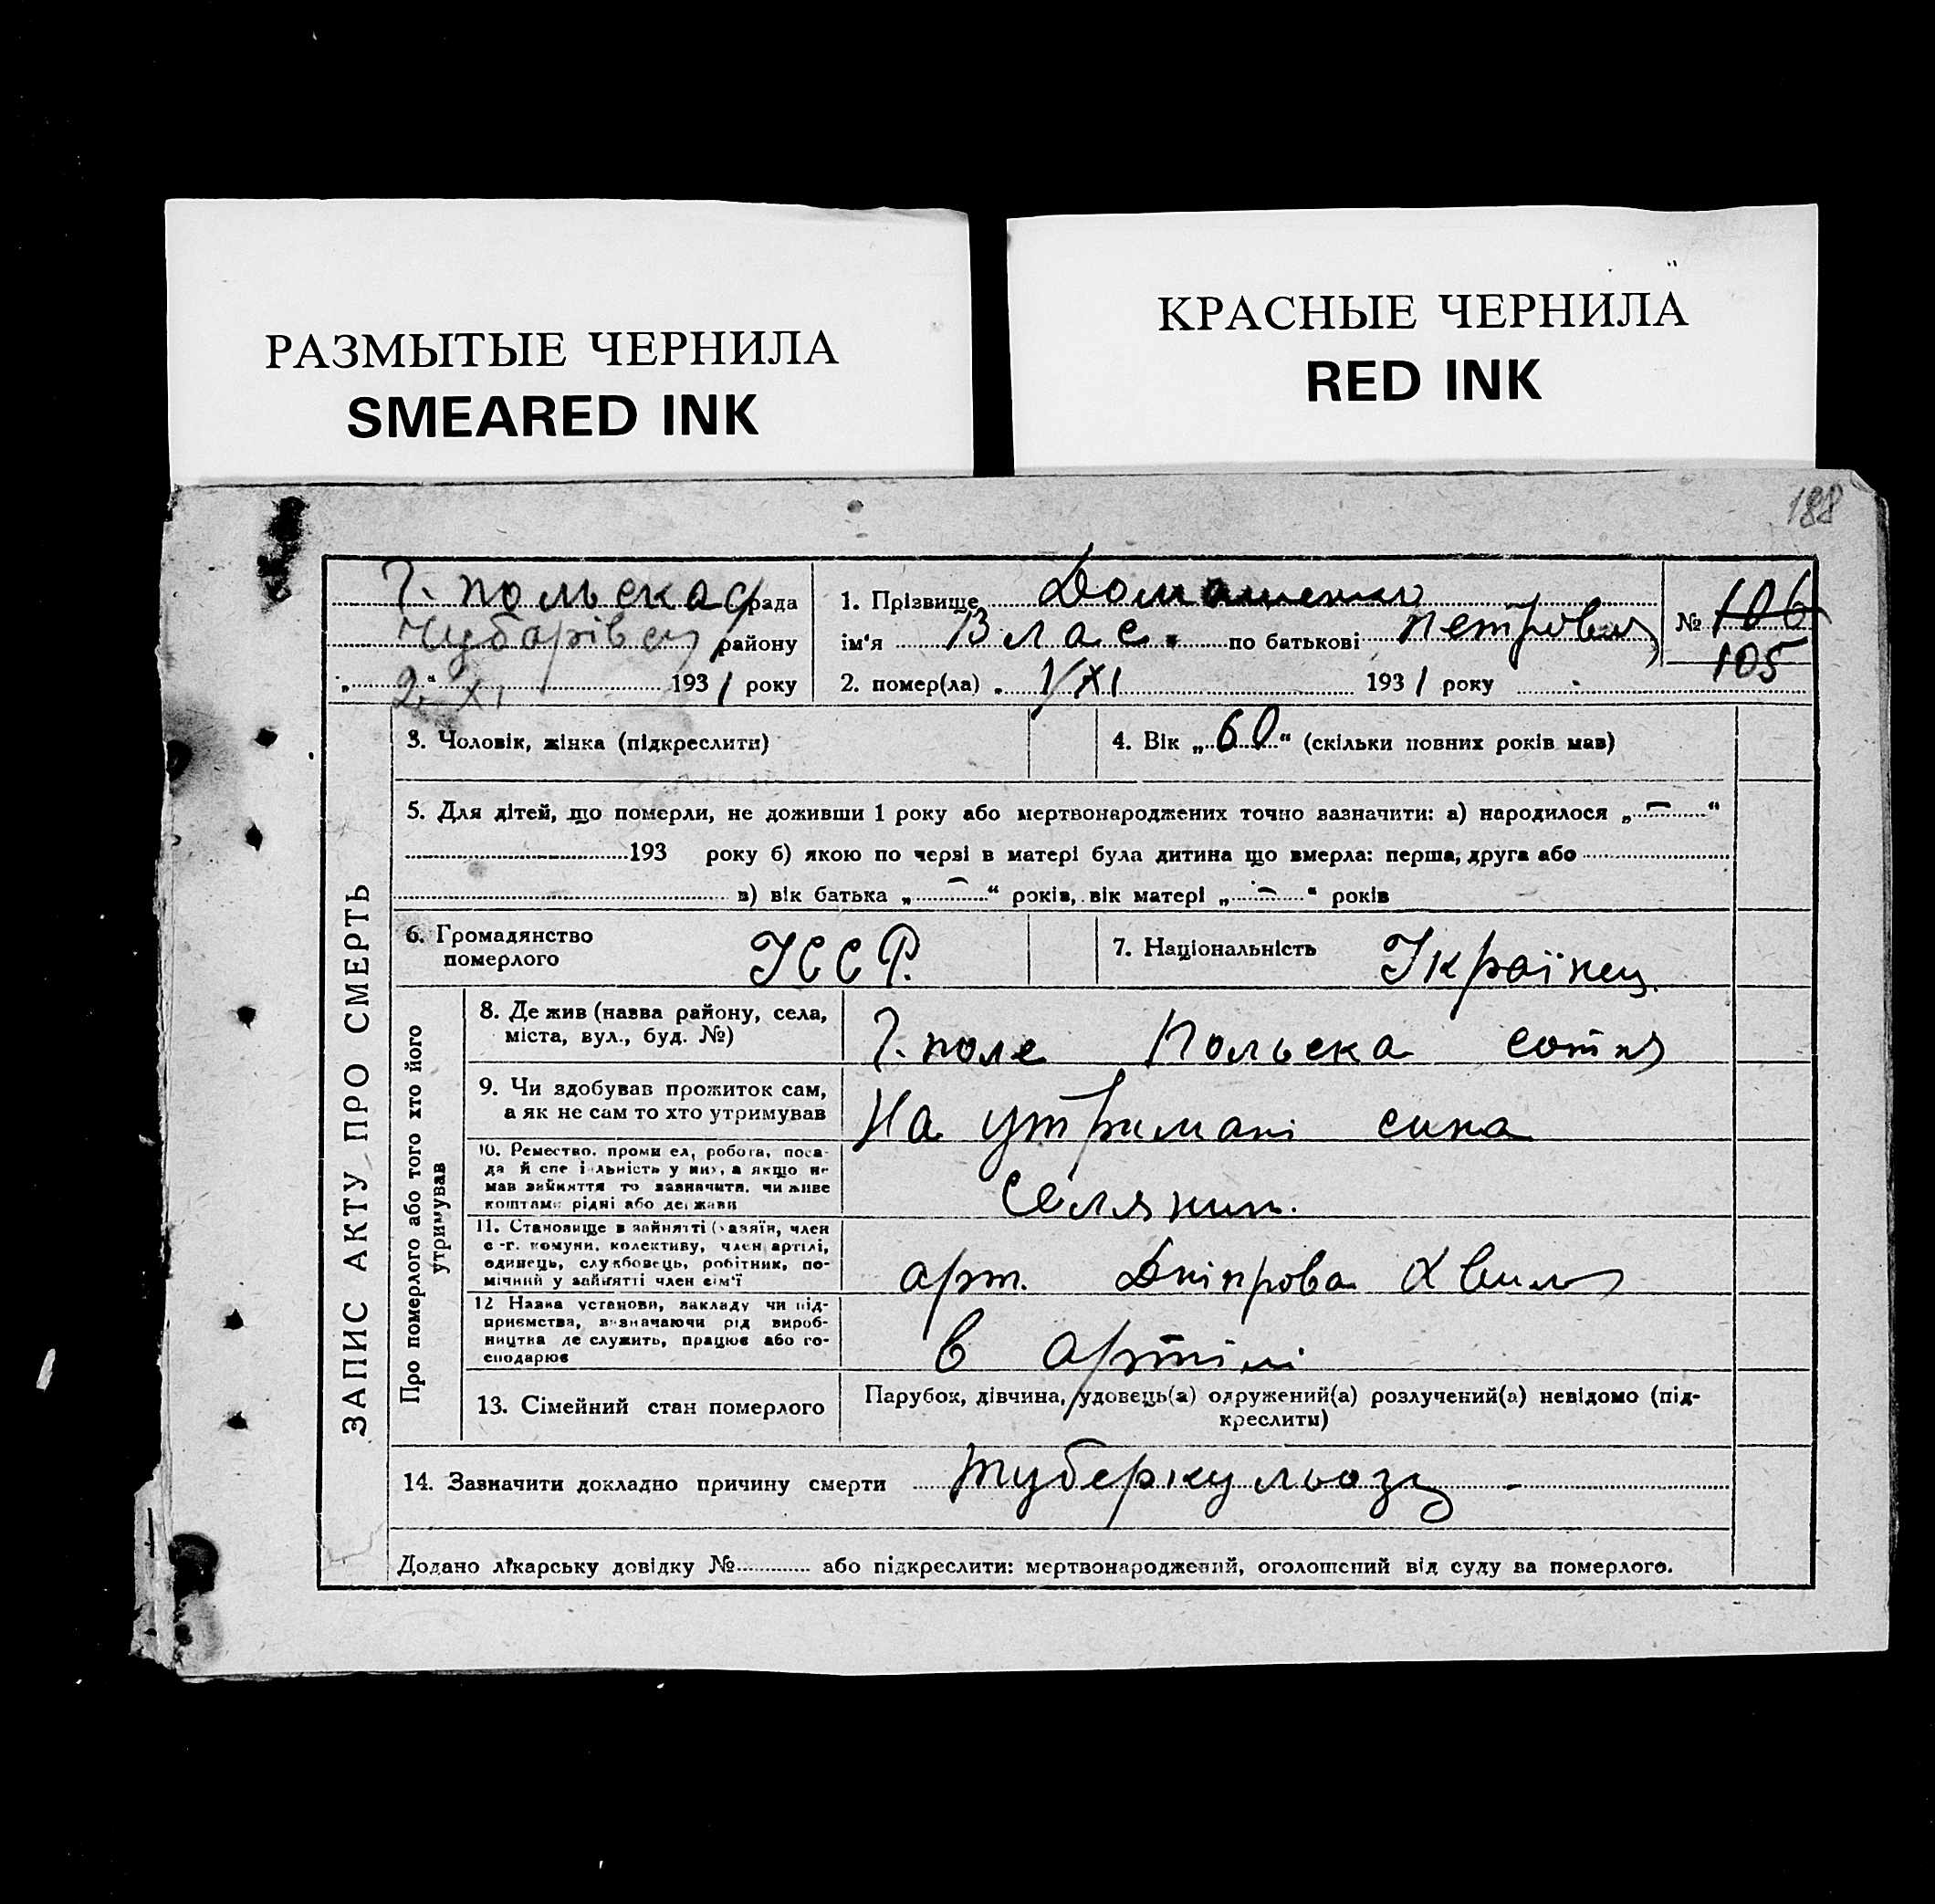 РАЗМЫТЫЕ ЧЕРНИЛА
SMEARED INK
КРАСНЫЕ ЧЕРНИЛА
RED INK
188
Г. польска с/рада
району
„ 2 “ XI 1931 року
1. Прізвище Домашенко
ім'я Влас по батькові Петрович
№ 106
105
2. помер(ла) „ 1/XI 1931 року
ЗАПИС АКТУ ПРО СМЕРТЬ
3. Чоловік, жінка (підкреслити)
4. Вік „ 60 “ (скільки повних років мав)
5. Для дітей, що померли, не доживши 1 року або мертвонароджених точно зазначити: а) народилося „ — “
193 року б) якою по черзі в матері була дитина що вмерла: перша, друга або
в) вік батька „ — “ років, вік матері „ — “ років
6. Громадянство
померлого
УССР.
7. Національність Українец.
Про померлого або того хто його
утримував
8. Де жив (назва району, села,
міста, вул., буд. №)
Г. поле Польска сотня
9. Чи здобував прожиток сам,
а як не сам то хто утримував
На утримані сина
10. Ремество, промисел, робота, поса-
да й спеціяльність у них, а якщо не
мав зайняття то зазначити, чи живе
коштами рідні або держави
Селянин.
11. Становище в зайнятті (хазяїн, член
с-г. комуни, колективу, член артілі,
одинець, службовець, робітник, по-
мічний у зайнятті член сім'ї
арт. Дніпрова Хвиля
12 Назва установи, закладу чи під-
приємства, визначаючи рід вироб-
ництва де служить, працює або го-
сподарює
в артілі
13. Сімейний стан померлого
Парубок, дівчина, удовець(а) одружений(а) розлучений(а) невідомо (під-
креслити)
14. Зазначити докладно причину смерти туберкульозу
Додано лікарську довідку № або підкреслити: мертвонароджений, оголошений від суду за померлого.